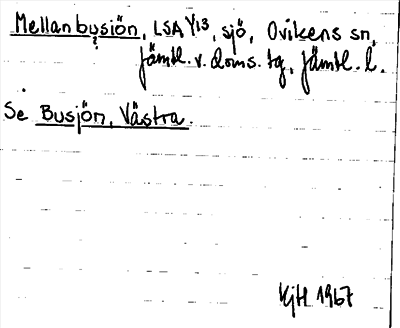 Mellanbusjön, LSA Y13, sjö, Ovikens sn,
Jämtl. v. doms. tg, Jämtl. l.
Se Busjön, Västra.
KjH 1967